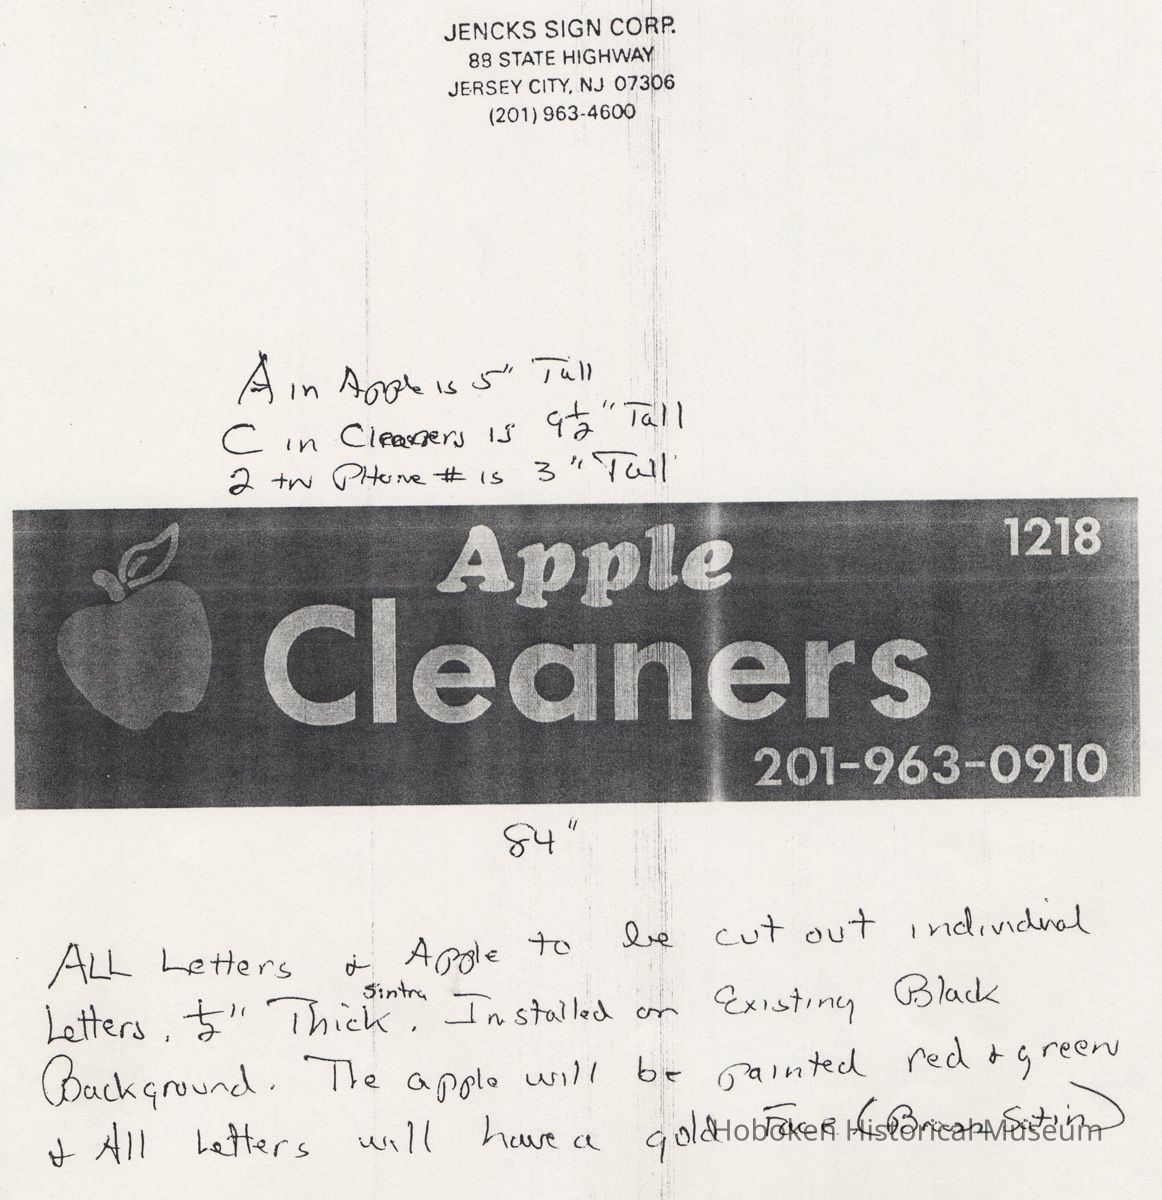 JENCKS SIGN CORP.
88 STATE HIGHWAY
JERSEY CITY, NJ 07306
(201) 963-4600
A in Apple is 5" Tall
C in Cleaners is 9½" Tall
2 in PHone # is 3" Tall
Apple
1218
Cleaners
201-963-0910
84"
ALL Letters & Apple to be cut out individual
Sintra
Letters, ½" Thick. Installed on Existing Black
Background. The apple will be painted red & green
& All Letters will have a gold Face (Brass Satin)
Hoboken Historical Museum